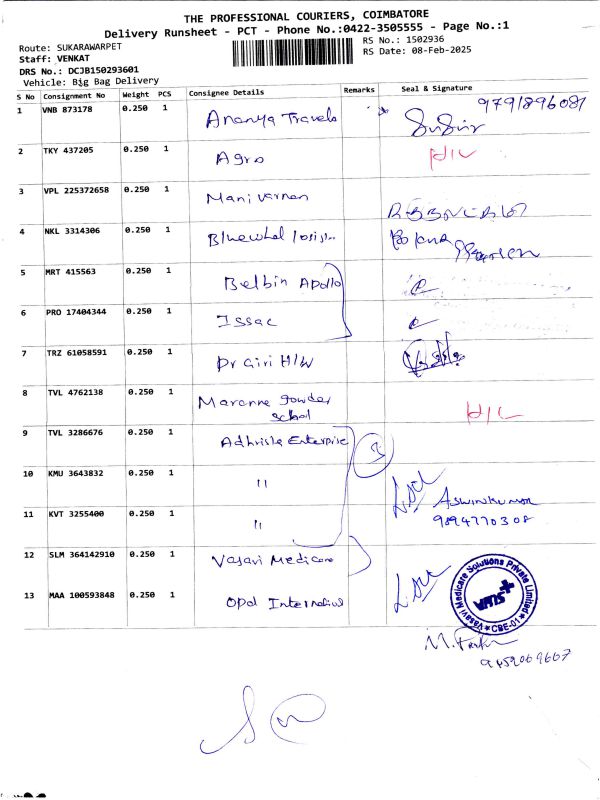 THE PROFESSIONAL COURIERS, COIMBATORE
Delivery Runsheet - PCT - Phone No.:0422-3505555 - Page No.:1
Route: SUKARAWARPET
RS No.: 1502936
Staff: VENKAT
RS Date: 08-Feb-2025
DRS No.: DCJB150293601
Vehicle: Big Bag Delivery
S No Consignment No Weight PCS Consignee Details Remarks Seal & Signature
1 VNB 873178 0.250 1 Ananya Travels 9791896081
2 TKY 437205 0.250 1 Agro H/L
3 VPL 225372658 0.250 1 Manivannan
4 NKL 3314306 0.250 1
5 MRT 415563 0.250 1 Belbin Apollo
6 PRO 17404344 0.250 1 Issac
7 TRZ 61058591 0.250 1 Dr Giri H/W
8 TVL 4762138 0.250 1 Maranna Gowder
School H/L
9 TVL 3286676 0.250 1 Adhrisla Enterprise 3
10 KMU 3643832 0.250 1 "
Aswinkumar
11 KVT 3255400 0.250 1 " 9894770308
12 SLM 364142910 0.250 1 Vasavi Medicare
13 MAA 100593848 0.250 1 Opal
Vasavi Medicare Solutions Private Limited
vms+
★ CBE-01 ★